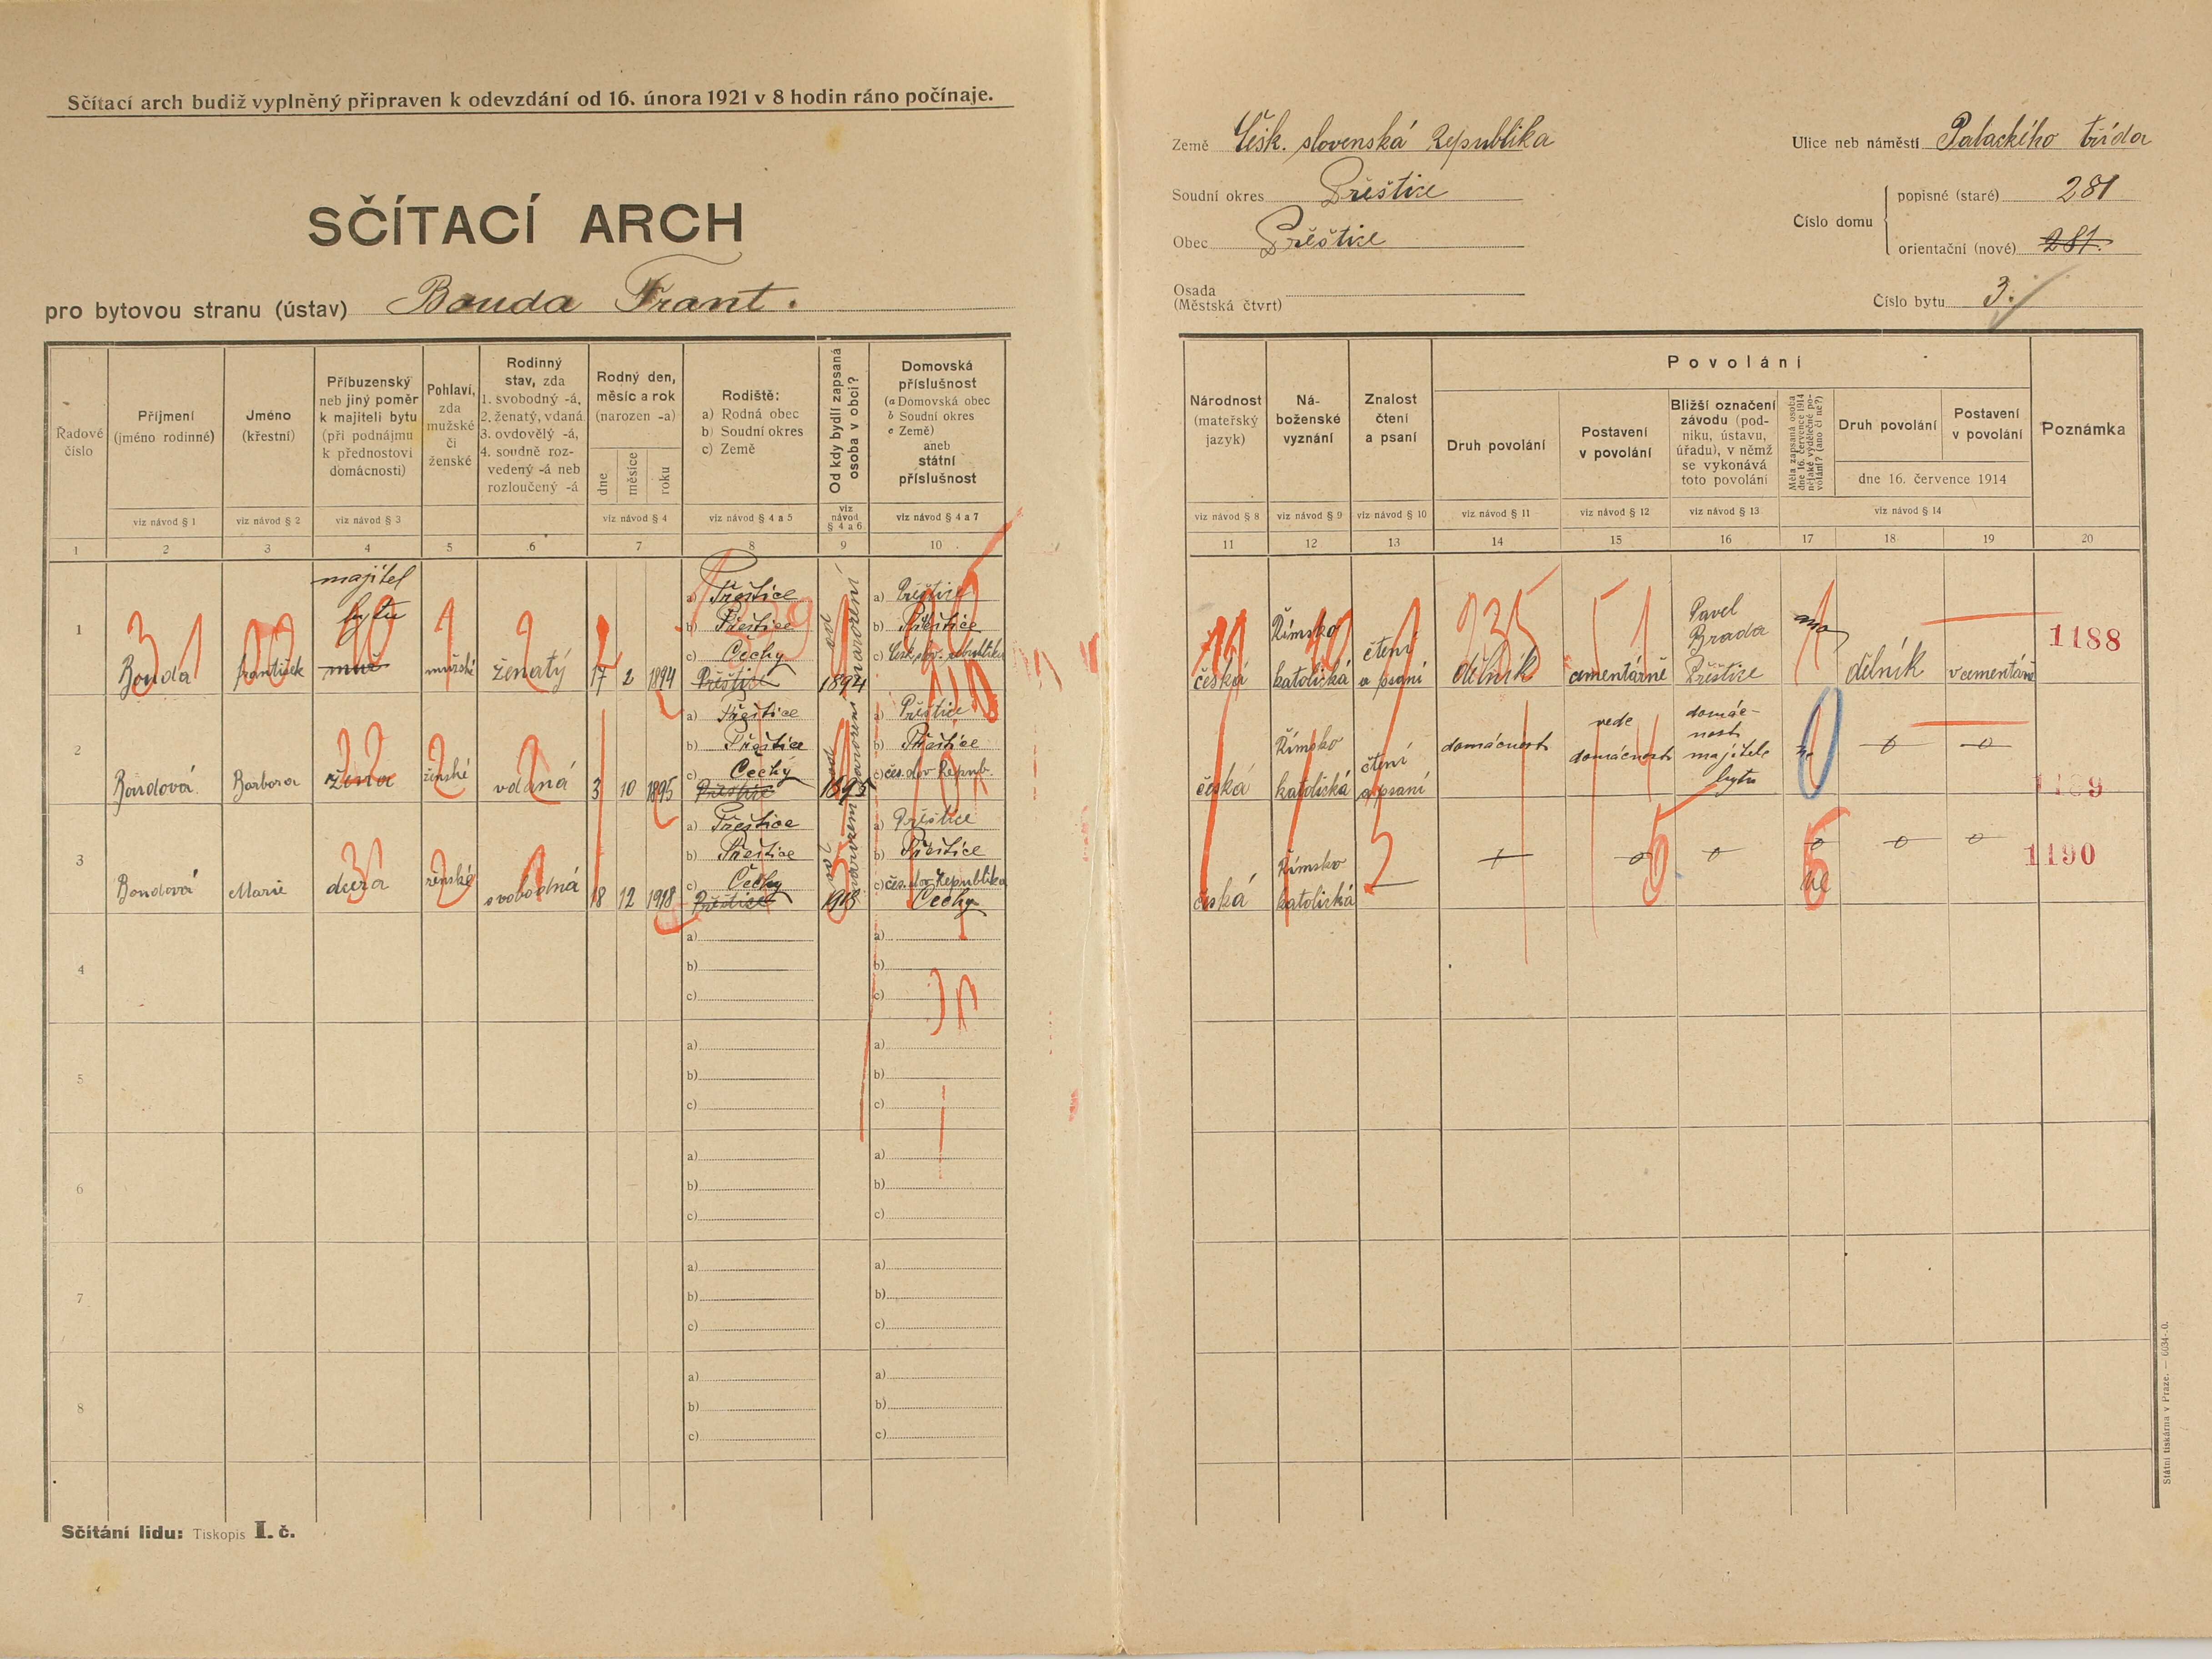 Sčítací arch budiž vyplněný připraven k odevzdání od 16. února 1921 v 8 hodin ráno počínaje.
SČÍTACÍ ARCH
pro bytovou stranu (ústav) Bouda Frant.
Země Česk. slovenská Republika
Soudní okres Přeštice
Obec Přeštice
Osada
(Městská čtvrt)
Ulice neb náměstí Palackého třída
Číslo domu
popisné (staré) 281
orientační (nové) 281.
Číslo bytu 3.
Řadové
číslo
Příjmení
(jméno rodinné)
viz návod § 1
Jméno
(křestní)
viz návod § 2
Příbuzenský
neb jiný poměr
k majiteli bytu
(při podnájmu
k přednostovi
domácnosti)
viz návod § 3
Pohlaví,
zda
mužské
či
ženské
Rodinný
stav, zda
1. svobodný -á,
2. ženatý, vdaná
3. ovdovělý -á,
4. soudně roz-
vedený -á neb
rozloučený -á
Rodný den,
měsíc a rok
(narozen -a)
dne
měsíce
roku
viz návod § 4
Rodiště:
a) Rodná obec
b) Soudní okres
c) Země
viz návod § 4 a 5
Od kdy bydlí zapsaná
osoba v obci?
viz
návod
§ 4 a 6
Domovská
příslušnost
(a Domovská obec
b Soudní okres
c Země)
aneb
státní
příslušnost
viz návod § 4 a 7
Národnost
(mateřský
jazyk)
viz návod § 8
Ná-
boženské
vyznání
viz návod § 9
Znalost
čtení
a psaní
viz návod § 10
Povolání
Druh povolání
viz návod § 11
Postavení
v povolání
viz návod § 12
Bližší označení
závodu (pod-
niku, ústavu,
úřadu), v němž
se vykonává
toto povolání
viz návod § 13
Měla zapsaná osoba
dne 16. července 1914
nějaké výdělečné po-
volání? (ano či ne?)
Druh povolání
Postavení
v povolání
dne 16. července 1914
viz návod § 14
Poznámka
1 2 3 4 5 6 7 8 9 10 11 12 13 14 15 16 17 18 19 20
1
Bouda
František
majitel
bytu
muž
mužské
ženatý
17 2 1894
a) Přeštice
b) Přeštice
c) Čechy
Přeštice
od narození
1894
a) Přeštice
b) Přeštice
c) Česk. slov. republika
česká
Římsko
katolická
čtení
a psaní
dělník
cementárně
Pavel
Brada
Přeštice
ano
dělník
v cementárně
1188
2
Boudová
Barbora
žena
ženské
vdaná
3 10 1895
a) Přeštice
b) Přeštice
c) Čechy
Přeštice
od narození
1895
a) Přeštice
b) Přeštice
c) čes. slov Repub.
česká
Římsko
katolická
čtení
a psaní
domácnost
vede
domácnost
domác-
nost
majitele
bytu
ne
0
0
1189
3
Boudová
Marie
dcera
ženské
svobodná
18 12 1918
a) Přeštice
b) Přeštice
c) Čechy
Přeštice
od narození
1918
a) Přeštice
b) Přeštice
c) čes. slov Republika
Čechy
česká
Římsko
katolická
0
0
0
ne
0
0
1190
4
a)
b)
c)
a)
b)
c)
5
a)
b)
c)
a)
b)
c)
6
a)
b)
c)
a)
b)
c)
7
a)
b)
c)
a)
b)
c)
8
a)
b)
c)
a)
b)
c)
Sčítání lidu: Tiskopis I. č.
Státní tiskárna v Praze. — 6034-0.